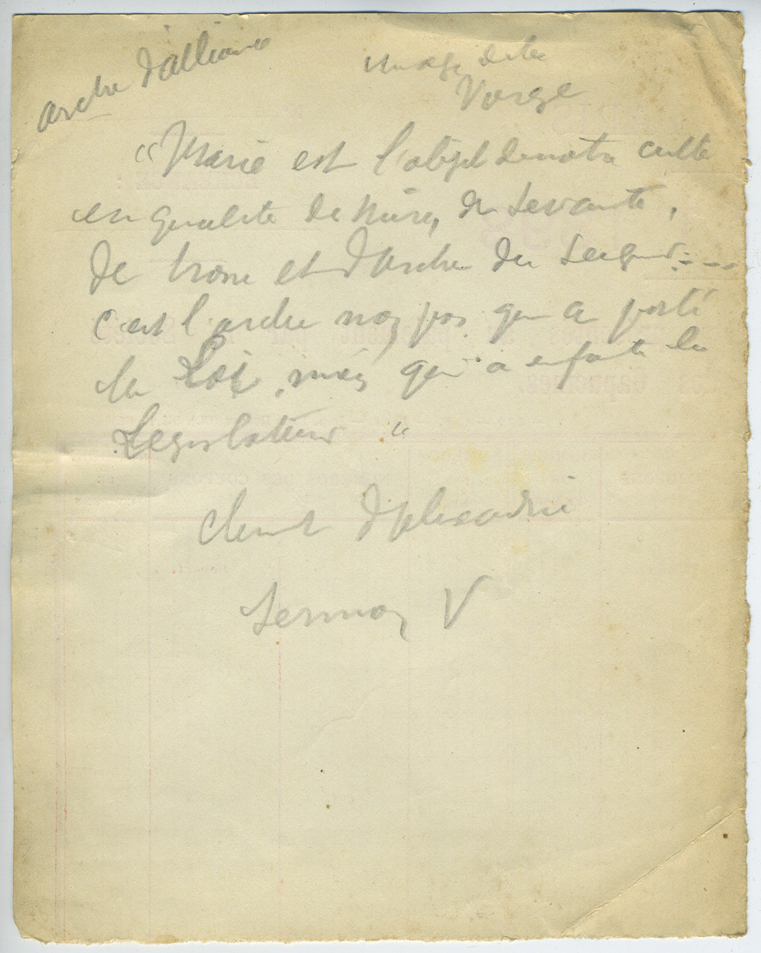 arche d'alliance
image de la
Vierge
"Marie est l'objet de notre culte
en qualité de Mère, de Servante,
de trone et d'Arche du Seigneur...
c'est l'arche non pas qui a porté
la Loi, mais qui a enfanté le
Legislateur "
Clement d'Alexandrie
Sermon V